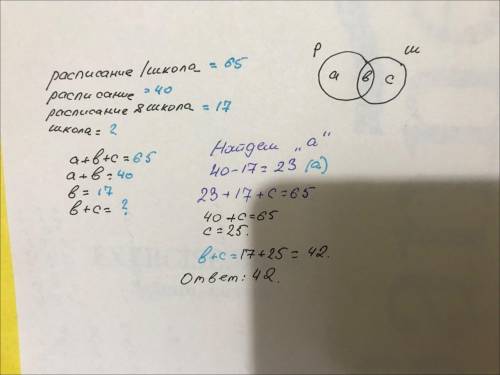 расписание / школа = 65
расписание = 40
расписание & школа = 17
школа = ?
a + в + c = 65
a + в = 40
в = 17
в + c = ?
Р
Ш
a
в
c
Найдем „a"
40 - 17 = 23 (a)
23 + 17 + c = 65
40 + c = 65
c = 25.
в + c = 17 + 25 = 42.
Ответ: 42.